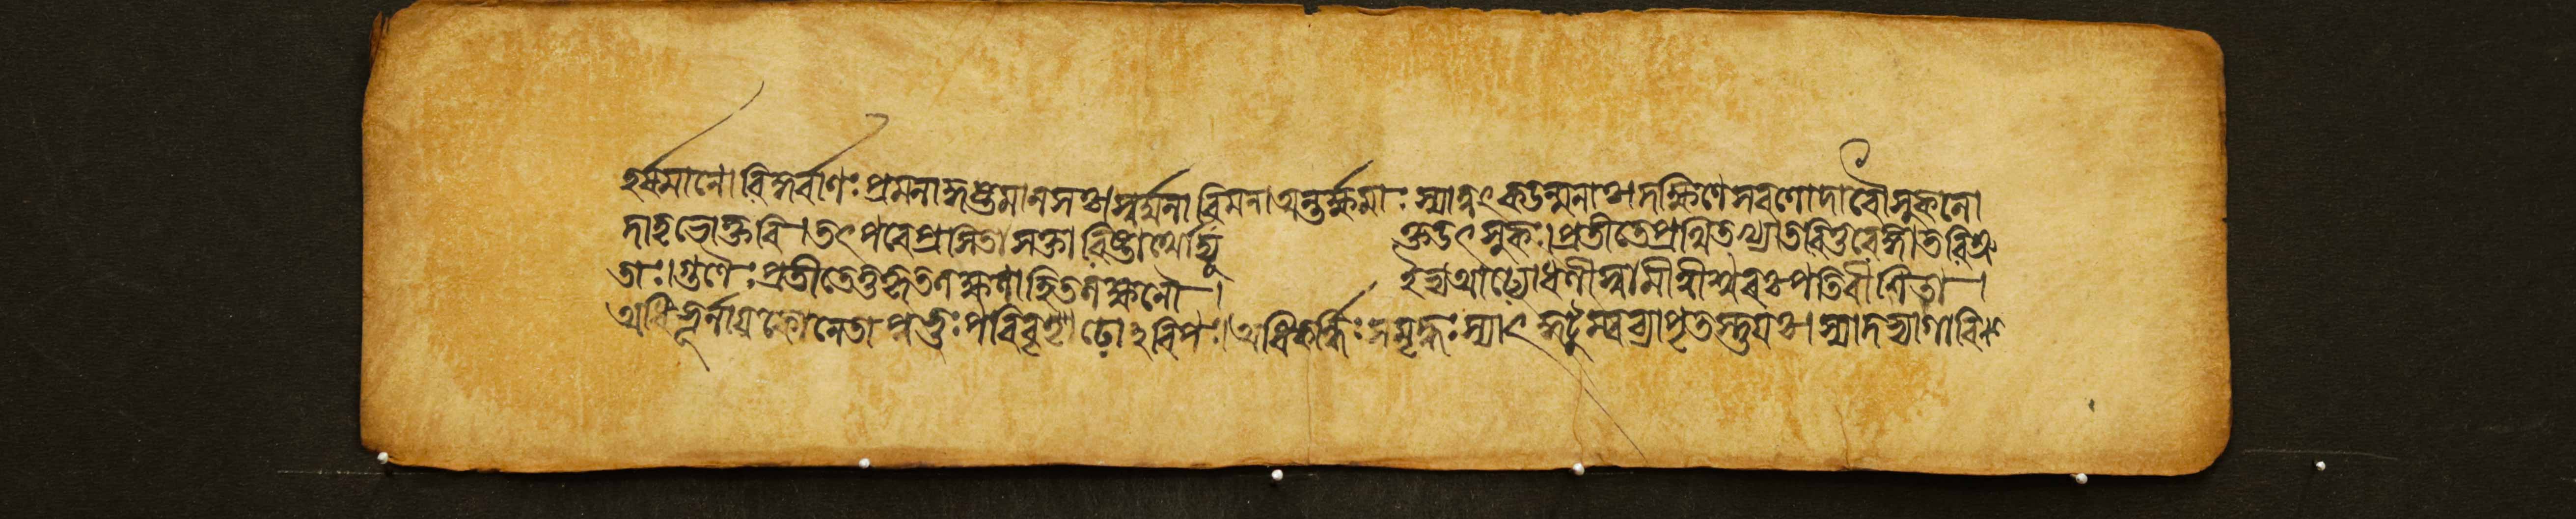 হর্ষমানো বিকুর্বাণঃ প্রমনা হৃষ্টমানসঃ। দুর্মনা বিমনা অন্তর্মনাঃ স্যাদুৎক উন্মনাঃ। দক্ষিণে সরলোদারৌ সুকলো
দাতৃভোক্তরি। তৎপরে প্রসিতাসক্তাবিষ্টার্থোদ্যু
ক্ত উৎসুকঃ। প্রতীতে প্রথিতখ্যাতবিত্তবিজ্ঞাতবিশ্রু
তাঃ। গুণৈঃ প্রতীতে তু কৃতলক্ষণাহিতলক্ষণৌ।
ইভ্য আঢ্যো ধনী স্বামী ত্বীশ্বরঃ পতিরীশিতা।
অধিভূর্নায়কো নেতা প্রভুঃ পরিবৃঢ়োঽধিপঃ। অধিকর্দ্ধিঃ সমৃদ্ধঃ স্যাৎ কুটুম্বব্যাপৃতস্তু যঃ। স্যাদভ্যাগারিক